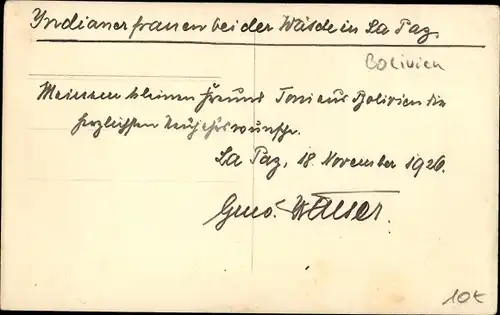 Yndianerfrauen bei der Wäsche in La Paz.
Bolivien
Meinem kleinen Freund Toni aus Bolivien die
herzlichsten Neujahrswünsche.
La Paz, 18. November 1926.
10€